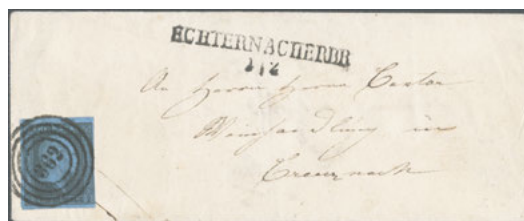 ECHTERNACHERBR
1/2
An Herrn Herrn
Weinhandlung in
Creuznach